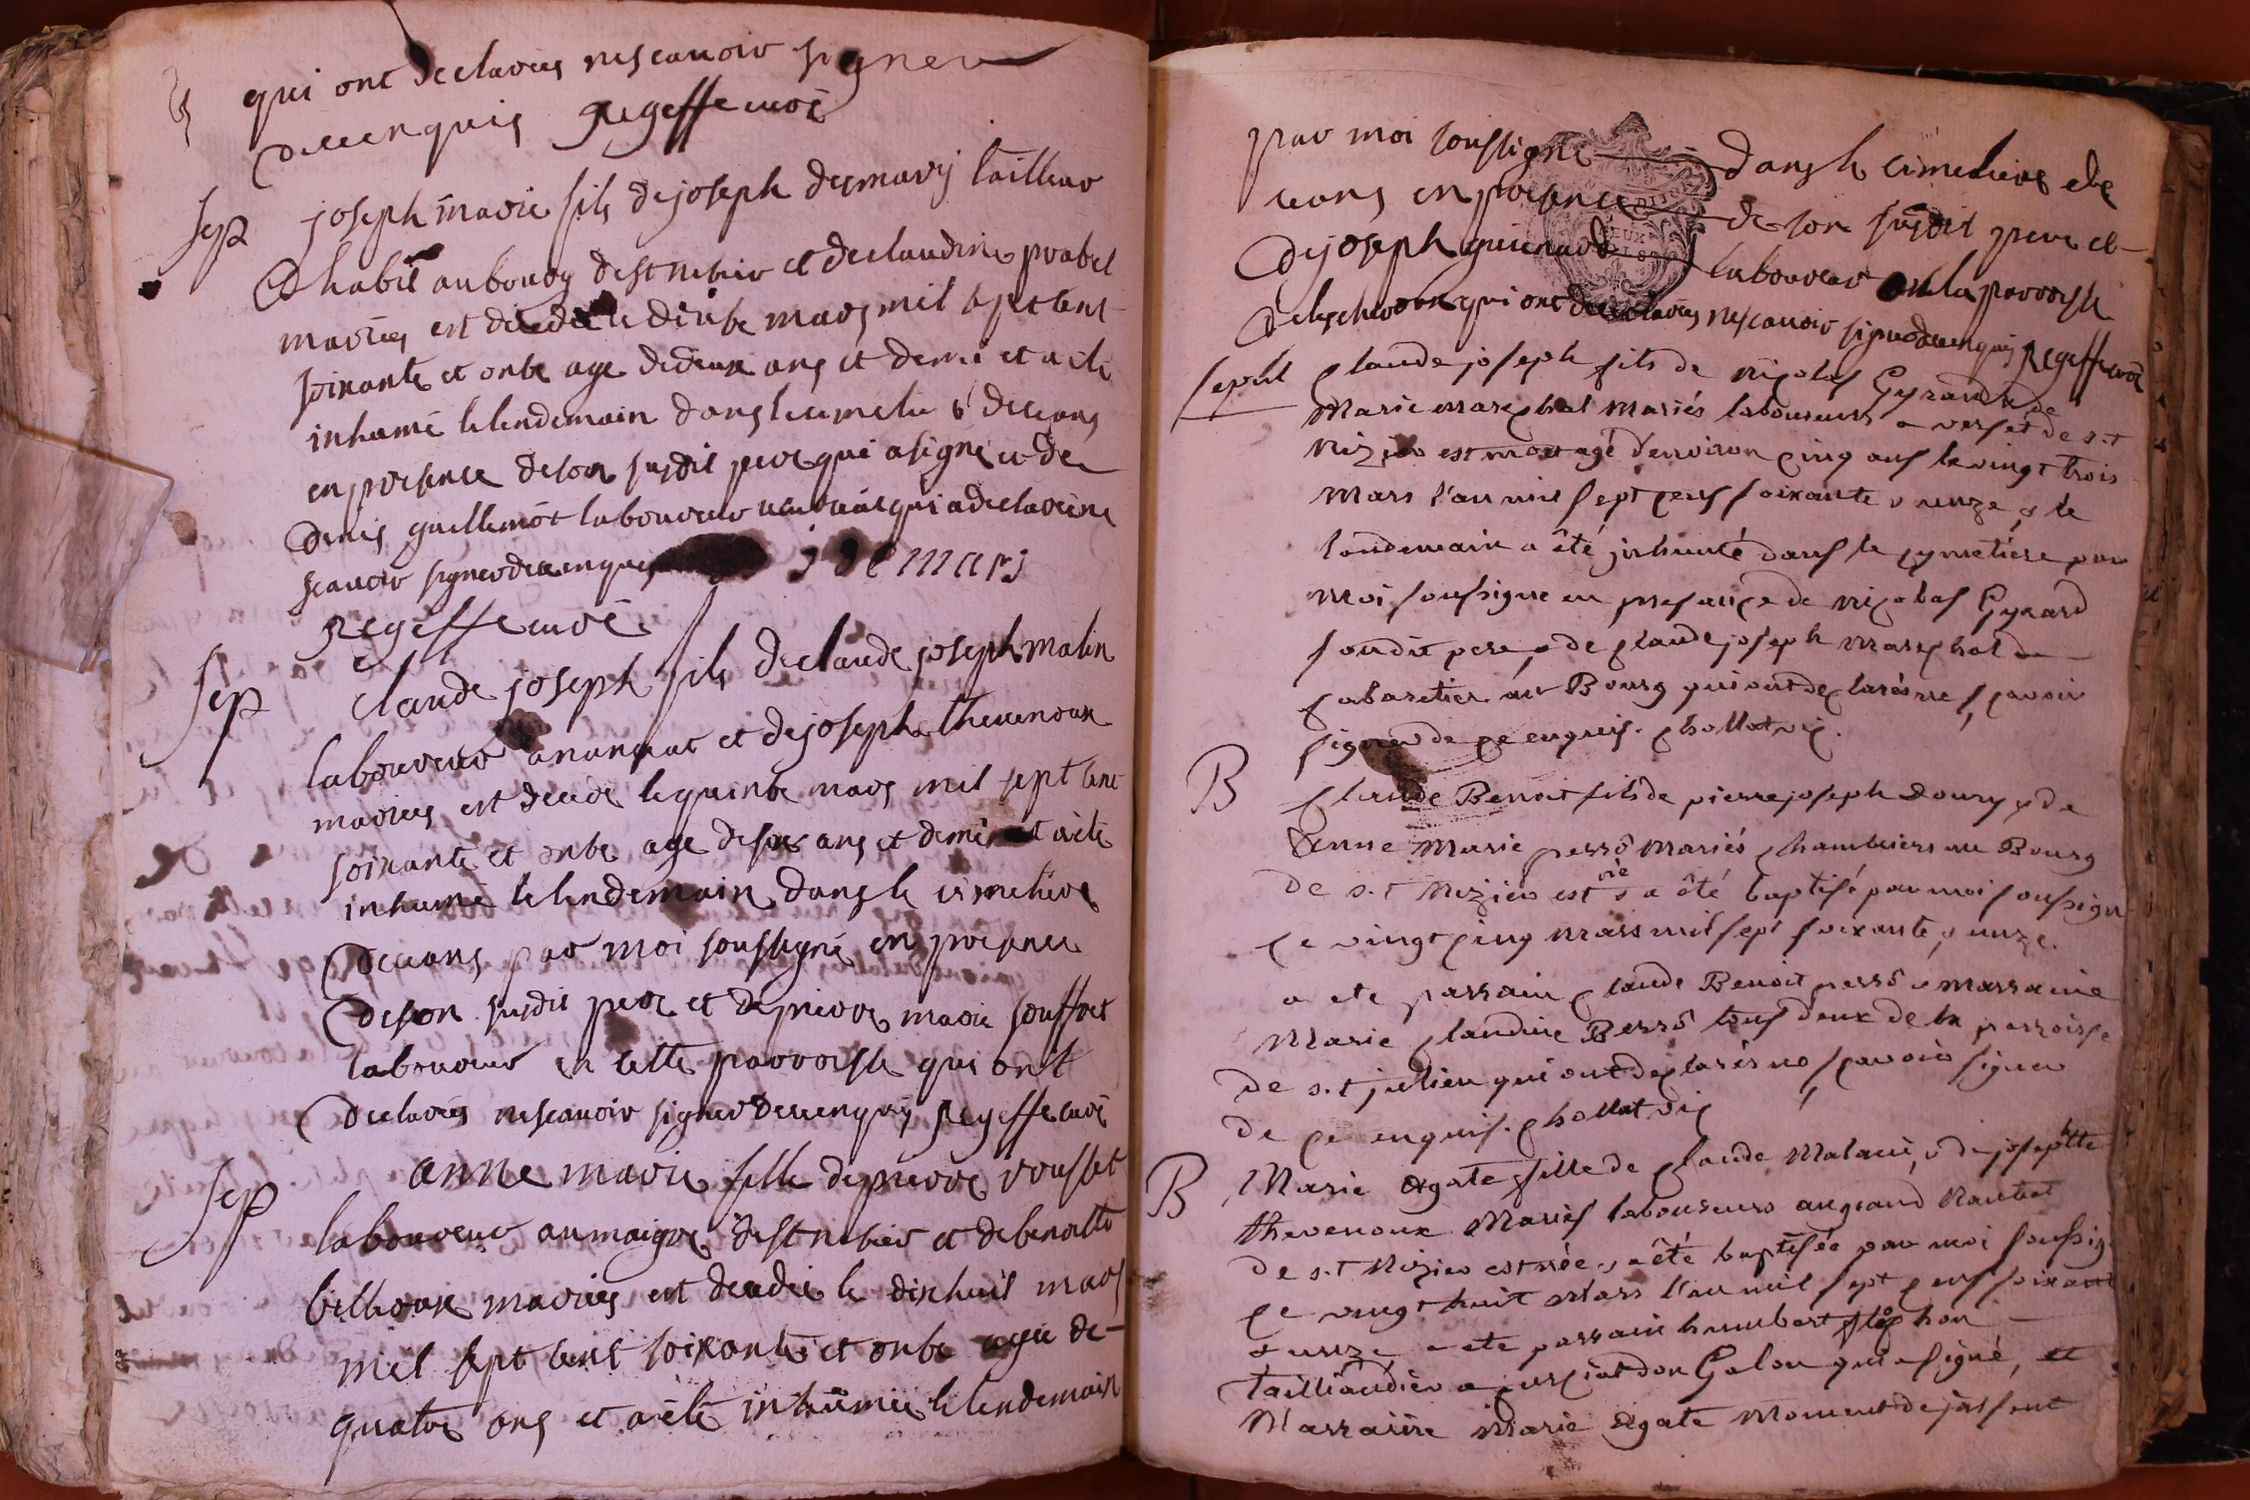 qui ont declarés nescavoir signer
decenquis regeffe curé
sep joseph marie fils de joseph desmaris tailleur
dhabit au bourg de st nisier et de claudine probet
mariés est decedé le mars mil sept cent
soixante et onbe age de deux ans et demi et a eté
inhumé le lendemain dans le cimetie decians
en presence de son susdit pere qui a signé et de
denis guillemot laboureur qui a declaré ne
scavoir signer decenquis j de mars
regeffe curé
sep claude joseph fils de claude joseph malin
laboureur a nanquat et de joseph thevenoux
mariés est decedé le quinbe mars mil sept cent
soixante et onbe age de ans et demi et a eté
inhumé le lendemain dans le cimetiere
decians par moi soussigné en presence
de son susdit pere et de pierre marie souffret
laboureur en cette parroisse qui ont
declarés nescavoir signer decenquis regeffe curé
sep anne marie fille de pierre rousset
laboureur au maigre de st nisier et de benoitte
billioux mariés est decedée le dixhuit mars
mil sept cent soixante et onbe agée de
quatre ans et a eté inhumée le lendemain
par moi soussigné dans le cimetiere de
cians en presence de son susdit pere et
de joseph guicnard laboureur en la parroisse
de qui ont declarés nescavoir signer decenquis regeffe curé
sepul Claude joseph fils de nicolas Gyrard & de
Marie mareschal Mariés laboureurs a versét de s.t
Nizier est mort agé d'environ cinq ans le vingt trois
Mars l'an mil sept cens soixante & unze & le
lendemain a été inhumé dans le cymetiere par
moi soussigné en presence de nicolas Gyrard
soudit pere, & de claude joseph mareschal
cabaretier au Bourg qui ont declarés ne scavoir
signer de ce enquis. chollat vic.
B Claude Benoit fils de pierre joseph & de
Anne Marie perrô Mariés chambriers au Bourg
De s.t Nizier est né & a été baptisé par moi soussigné
ce vingt cinq mars mil sept soixante & unze.
a ete parrain claude Benoit perrô & marraine
Marie claudine Berrô tous deux de la parroisse
de s.t julien qui ont declarés ne scavoir signer
de ce enquis. chollat vic
B Marie Agate fille de claude Malain, & de josephtte
thevenoux Mariés laboureurs au grand Nancuat
de s.t Nizier est née, & a été baptisée par moi soussig
ce vingt huit Mars l'an mil sept cens soixant
& unze a ete parrain humbert
taillandier a curciat don Galon qui a signé, et
Marraine Marie Agate Moment de